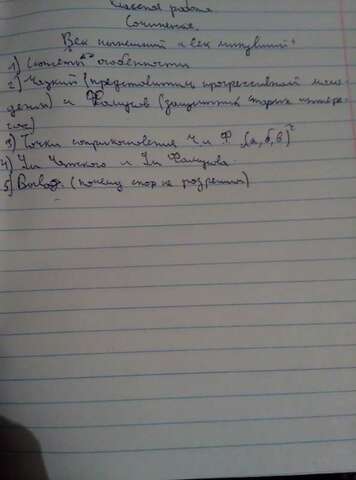 Классная работа
Сочинение.
"Век нынешний и век минувший"
1) Сюжетн особенности
2) Чацкий (представитель прогрессивной моло-
дежи) и Фамусов (защитник старых интере-
сов)
3) Точки соприкосновения Ч и Ф. (а, б, в)
4) Ум Чацкого и Ум Фамусова.
5) Вывод. (почему спор не разрешим)